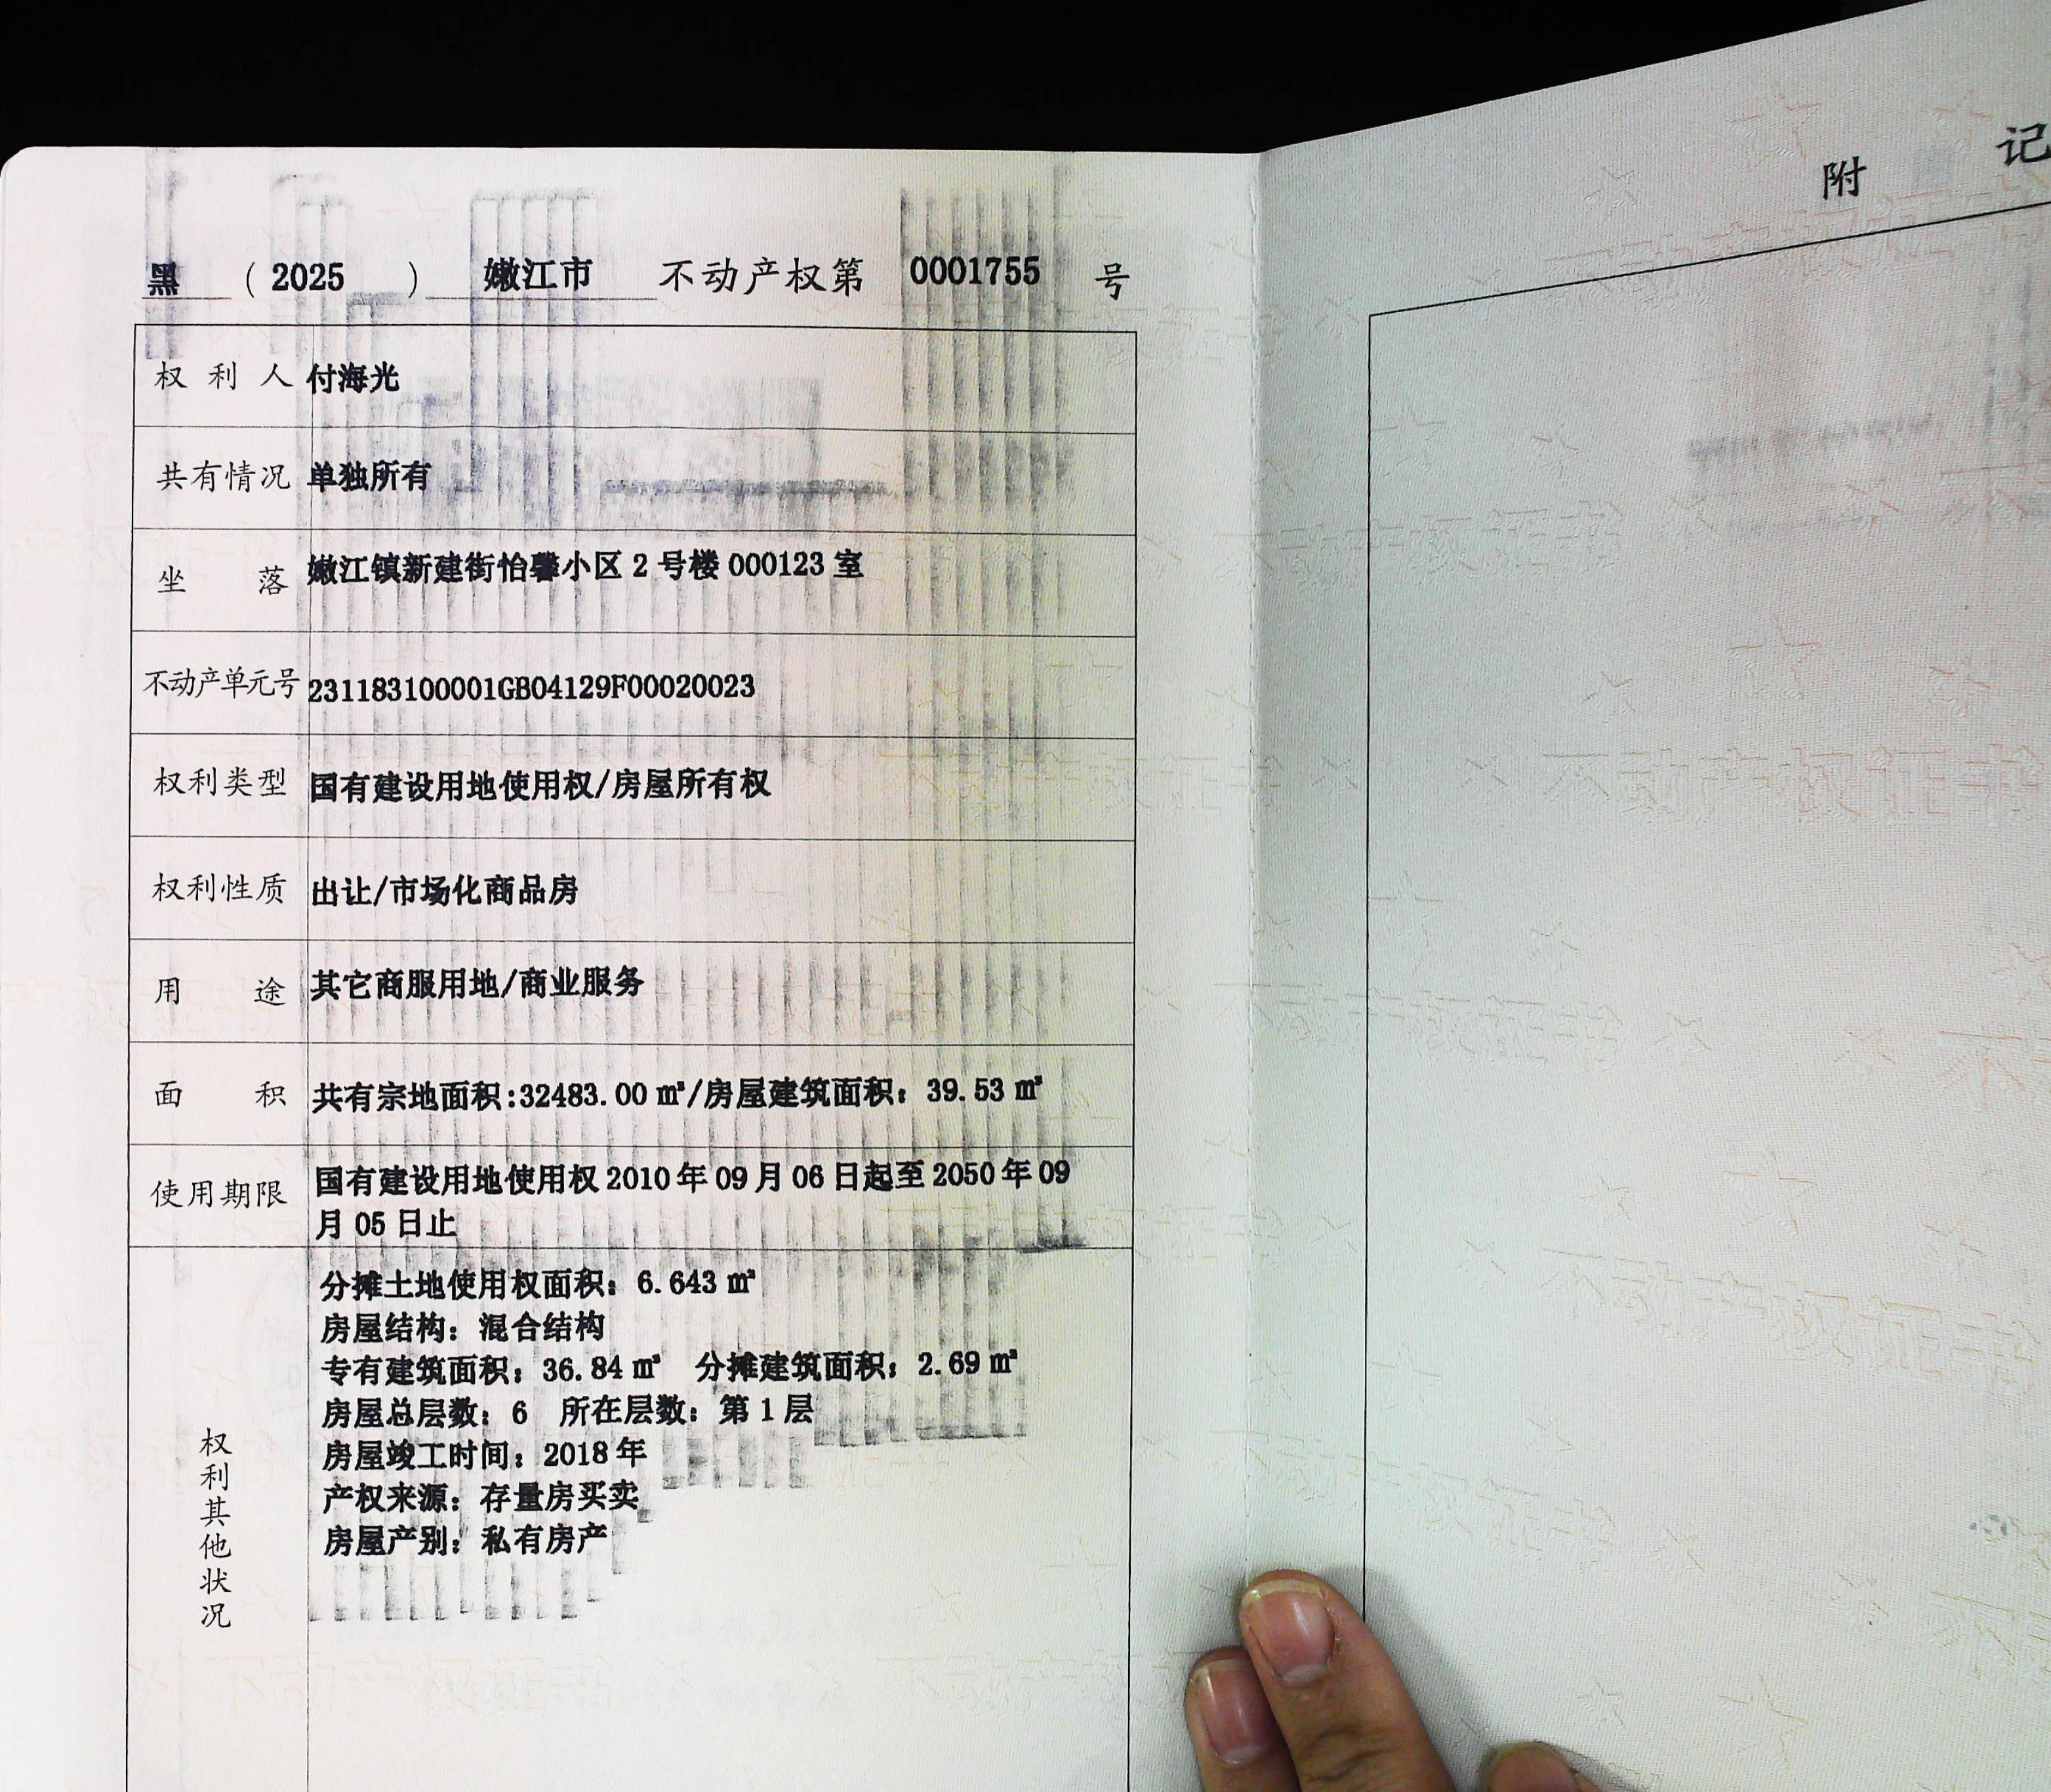 黑 （ 2025 ） 嫩江市 不动产权第 0001755 号
权利人 付海光
共有情况 单独所有
坐落 嫩江镇新建街怡馨小区 2 号楼 000123 室
不动产单元号 231183100001GB04129F00020023
权利类型 国有建设用地使用权/房屋所有权
权利性质 出让/市场化商品房
用途 其它商服用地/商业服务
面积 共有宗地面积:32483.00 ㎡/房屋建筑面积：39.53 ㎡
使用期限 国有建设用地使用权 2010 年 09 月 06 日起至 2050 年 09
月 05 日止
权利其他状况
分摊土地使用权面积：6.643 ㎡
房屋结构：混合结构
专有建筑面积：36.84 ㎡ 分摊建筑面积：2.69 ㎡
房屋总层数：6 所在层数：第 1 层
房屋竣工时间：2018 年
产权来源：存量房买卖
房屋产别：私有房产
附记